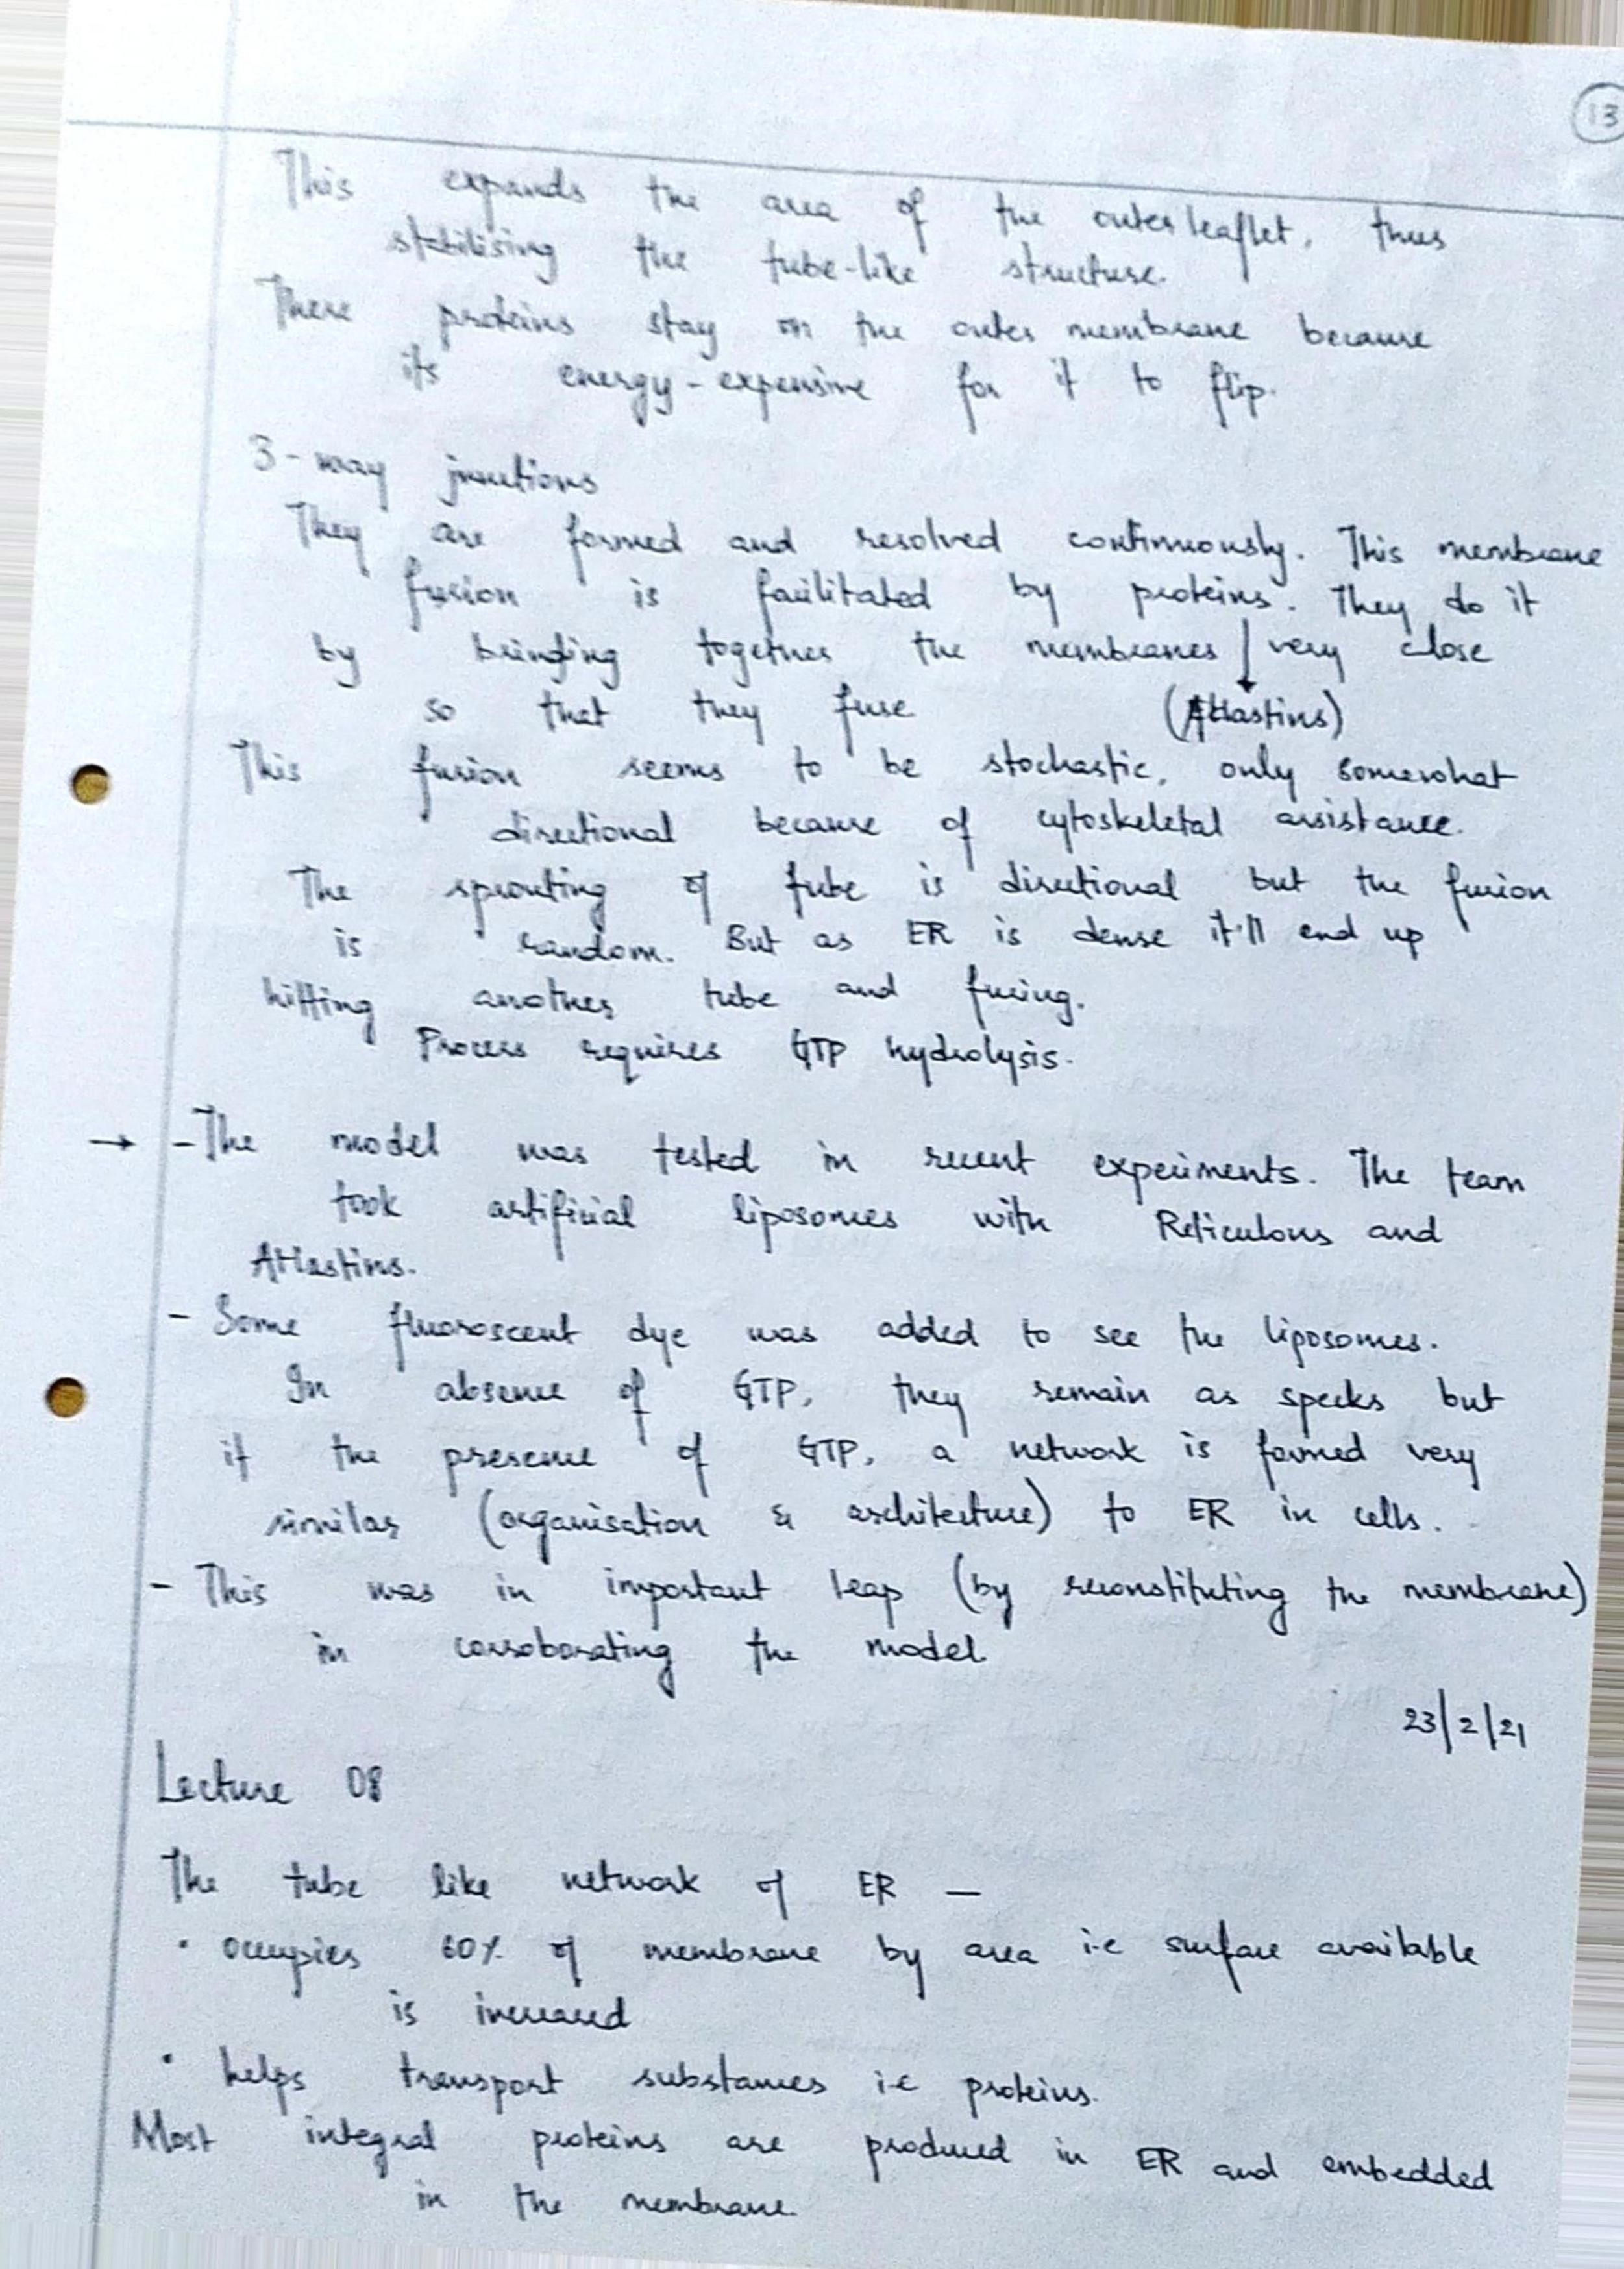 13
This expands the area of the outer leaflet, thus
stabilising the tube-like structure.
These proteins stay on the outer membrane because
its energy-expensive for it to flip.
3-way junctions
They are formed and resolved continuously. This membrane
fusion is facilitated by proteins. They do it
by bringing together the membranes very close
so that they fuse (Atlastins)
This fusion seems to be stochastic, only somewhat
directional because of cytoskeletal assistance.
The sprouting of tube is directional but the fusion
is random. But as ER is dense it'll end up
hitting another tube and fusing.
Process requires GTP hydrolysis.
→ - The model was tested in recent experiments. The team
took artificial liposomes with Reticulons and
Atlastins.
- Some fluoroscent dye was added to see the liposomes.
In absence of GTP, they remain as specks but
if the presence of GTP, a network is formed very
similar (organisation & architecture) to ER in cells.
- This was in important leap (by reconstituting the membrane)
in corroborating the model
23/2/21
Lecture 08
The tube like network of ER —
• occupies 60% of membrane by area i.e surface available
is increased
• helps transport substances i.e proteins.
Most integral proteins are produced in ER and embedded
in the membrane.